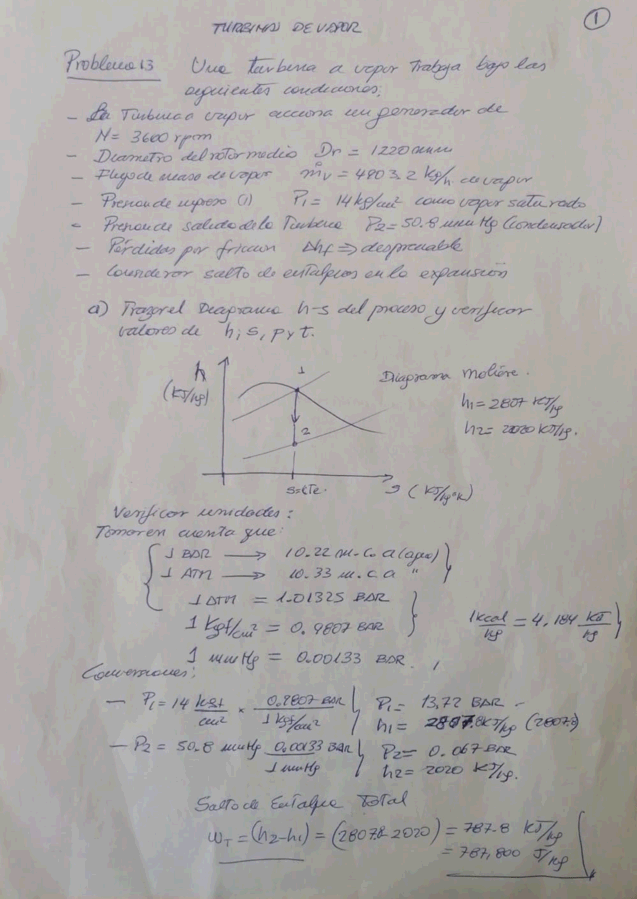 TURBINAS DE VAPOR
1
Problema 13 Una turbina a vapor trabaja bajo las
siguientes condiciones:
- La Turbina a vapor acciona un generador de
N = 3600 rpm
- Diametro del rotor medio Dr = 1220 mm
- Flujo de masa de vapor ṁv = 4803.2 kg/h de vapor
- Presion de ingreso (1) P1 = 14 kg/cm² como vapor saturado
- Presion de salida de la Turbina P2 = 50.8 mm Hg (Condensador)
- Pérdidas por friccion Δhf ⇒ despreciable
- Considerar salto de entalpias en la expansión
a) Trazar el Diagrama h-s del proceso y verificar
valores de h, s, p y t.
h
(KJ/kg)
1
2
s=cte.
s (KJ/kg°K)
Diagrama moliere.
h1 = 2807 KJ/kg
h2 = 2020 KJ/kg.
Verificar unidades:
Tomar en cuenta que:
1 BAR → 10.22 m.c.a (agua)
1 ATM → 10.33 m.c.a "
1 ATM = 1.01325 BAR
1 Kgf/cm² = 0.9807 BAR
1 mmHg = 0.00133 BAR.
1 kcal/kg = 4.184 KJ/kg
Conversiones:
- P1 = 14 kgf/cm² × 0.9807 BAR / 1 kgf/cm²
P1 = 13,72 BAR
h1 = 2807.8 KJ/kg
- P2 = 50.8 mmHg 0.00133 BAR / 1 mmHg
P2 = 0.067 BAR
h2 = 2020 KJ/kg.
Salto de Entalpia Total
WT = (h2-h1) = (2807.8-2020) = 787.8 KJ/kg
= 787,800 J/kg